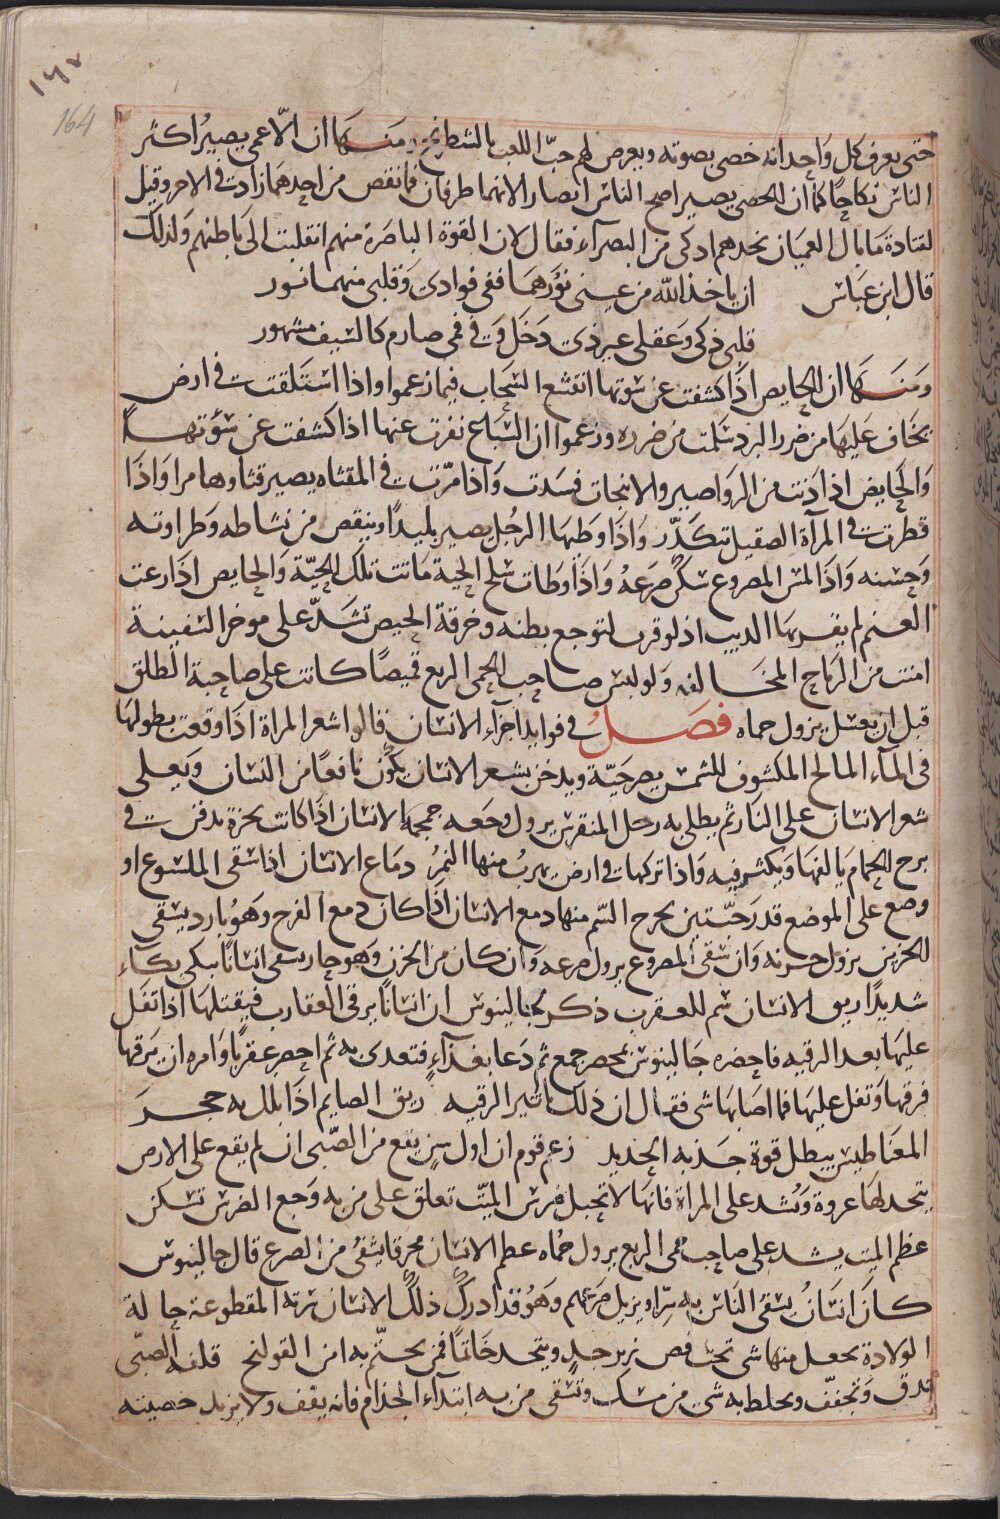 ١٦٧
164
حتى يعرف كل واحد انه خصى بصوته ويعرض لهم حب اللعب بالشطرنج ومنها ان الاعمى يصير اكثر
الناس نكاحا كما ان الخصى يصير اصح الناس ابصارا لانهما طرفان فما نقص من احدهما زاد فى الاخر وقيل
لقتادة ما بال العميان نجدهم اذكى من البصراء فقال لان القوة الباصرة منهم انقلبت الى باطنهم ولذلك
قال ابن عباس ان ياخذ الله من عينى نورهما ففى فوادى وقلبى منهما نور
قلبى ذكى وعقلى غير ذى دخل وفى فمى صارم كالسيف مشهور
ومنها ان الحايض اذا كشفت عن سوتها انقشع السحاب فيما زعموا واذا استلقت فى ارض
يخاف عليها من ضرر البرد سلمت من ضرره وزعموا ان السباع نفرت عنها اذا كشفت عن سؤتها
والحايض اذا دنت من الرواصير والانبجات فسدت واذا مرت فى المقثاه يصير قثاوها مرا واذا
نظرت فى المرآة الصقيل تتكدر واذا وطيها الرجل يصير بليدا وينقص من نشاطه وطراوته
وحسنه واذا لمس المصروع سكن صرعه واذا وطات سلخ الحية ماتت تلك الحية والحايص اذا رعت
الغنم لم يقربها الديب اذ لو قرب لتوجع بطنه وخرقة الحيص تشد على موخر السفينة
امنت من الرياح المخالفه ولو لبس صاحب الحمى الربع قميصا كانت على صاحبة الطلق
قبل ان يغسل يزول حماه فصل فى فوايد اجزآء الانسان قالوا شعر المراة اذا وقعت بطولها
فى المآء المالح المكشوف للشمس يصر حية ويدخن بشعر الانسان يكون نافعا من النسان ويغلى
شعر الانسان على النار ثم يطلى به رجل المنقرس يزول وجعه جمجمة الانسان اذا كانت نخرة تدفن فى
برج الحمام يالفها ويكثر فيه واذا تركها فى ارض يهرب منها النمر دماغ الانسان اذا سقى الملسوع او
وضع على الموضع قدر حبتين يخرج السم منها دمع الانسان اذا كان دمع الفرح وهو بارد يسقى
للحزين يزول حزنه وان سقى المصروع يزول صرعه وان كان من الحزن وهو حار يسقى انسانا يبكى بكاء
شديدا ريق الانسان سم للعقرب ذكر جالينوس ان انسانا يرقى العقارب فيقتلها اذا تفل
عليها بعد الرقيه فاحضره جالينوس بمحضر جمع ثم دعا بغذآء فتعدى به ثم احضر عقربا وامره ان يرقها
فرقها وتفل عليها فما اصابها شى فقال ان ذلك تاثير الرقيه ريق الصايم اذا بلل به حجر
المغناطيس يبطل قوة جذبه الحديد زعم قوم ان اول سن يقع من الصبى ان لم يقع على الارض
يتخد لها عروة وتشد على المراة فانها لا تحبل ضرس الميت تعلق على من به وجع الضرس تسكن
عظم الميت يشد على صاحب حمى الربع يزول حماه عظم الانسان محرقا يشفى من الصرع قال جالينوس
كان انسان يسقى الناس به سرا ويزيل صرعهم وهو قد ادرك ذلك الانسان سرته المقطوعة حالة
الولادة يجعل منها شى تحت فص زبرجد ويتخد خاتما فمن يختم به امن القولنج قلفه الصبى
تدق وتجفف ويخلط به شى من مسك وتسقى من به ابتدآء الجذام فانه يقف ولا يزيد خصيته